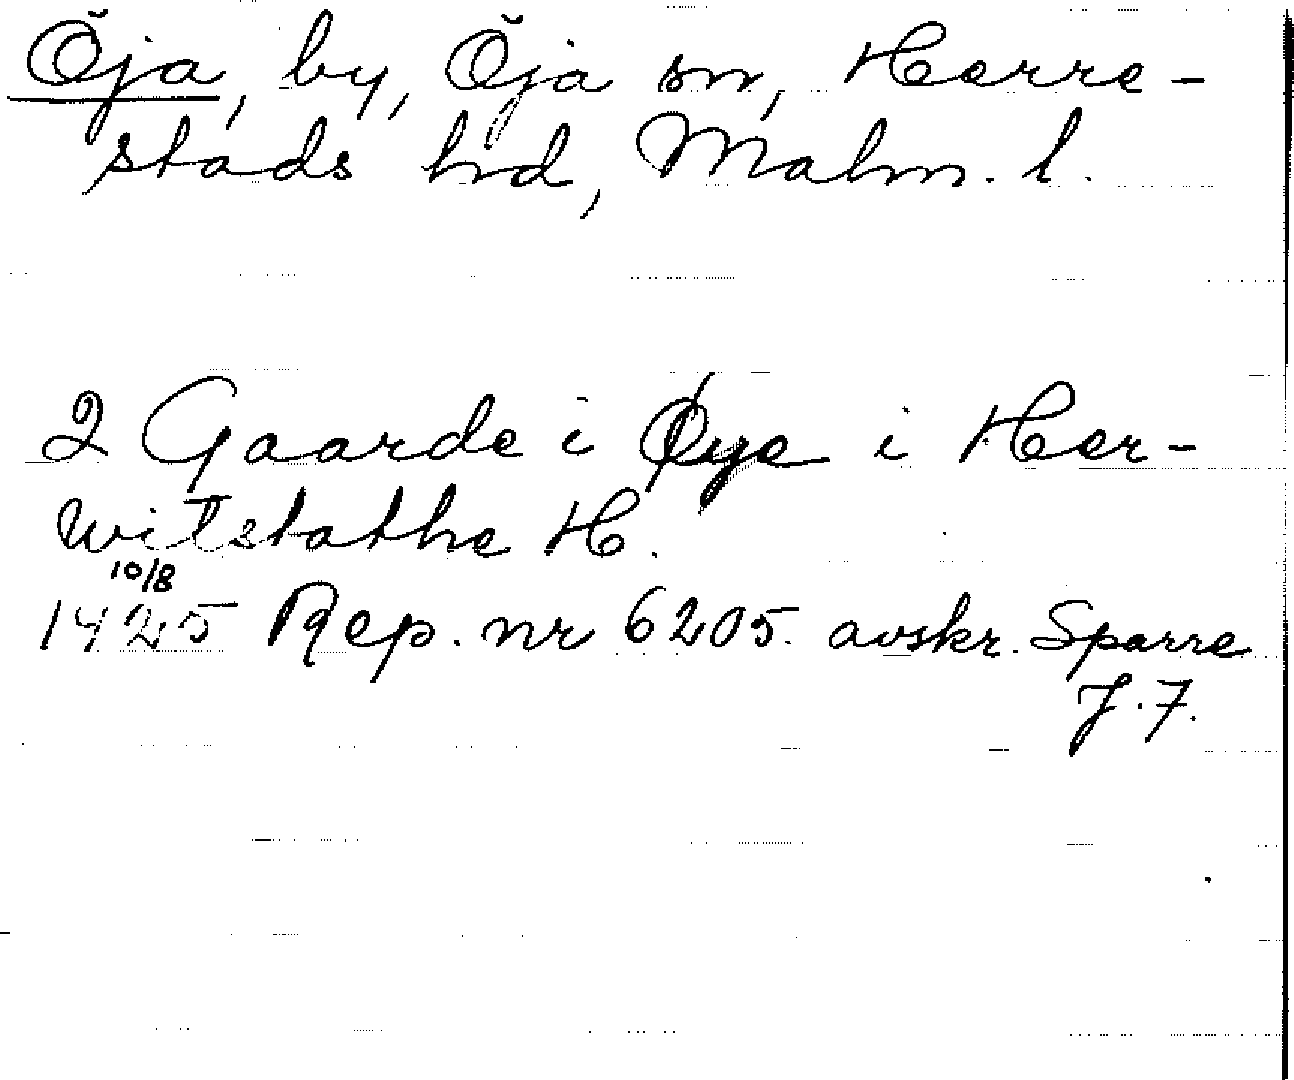 Öja, by, Öja sn, Herre-
stads hd, Malm. l.
2 Gaarde i Øye i Her-
witstathe H.
10/8
1425 Rep. nr 6205. avskr. Sparre
J.F.